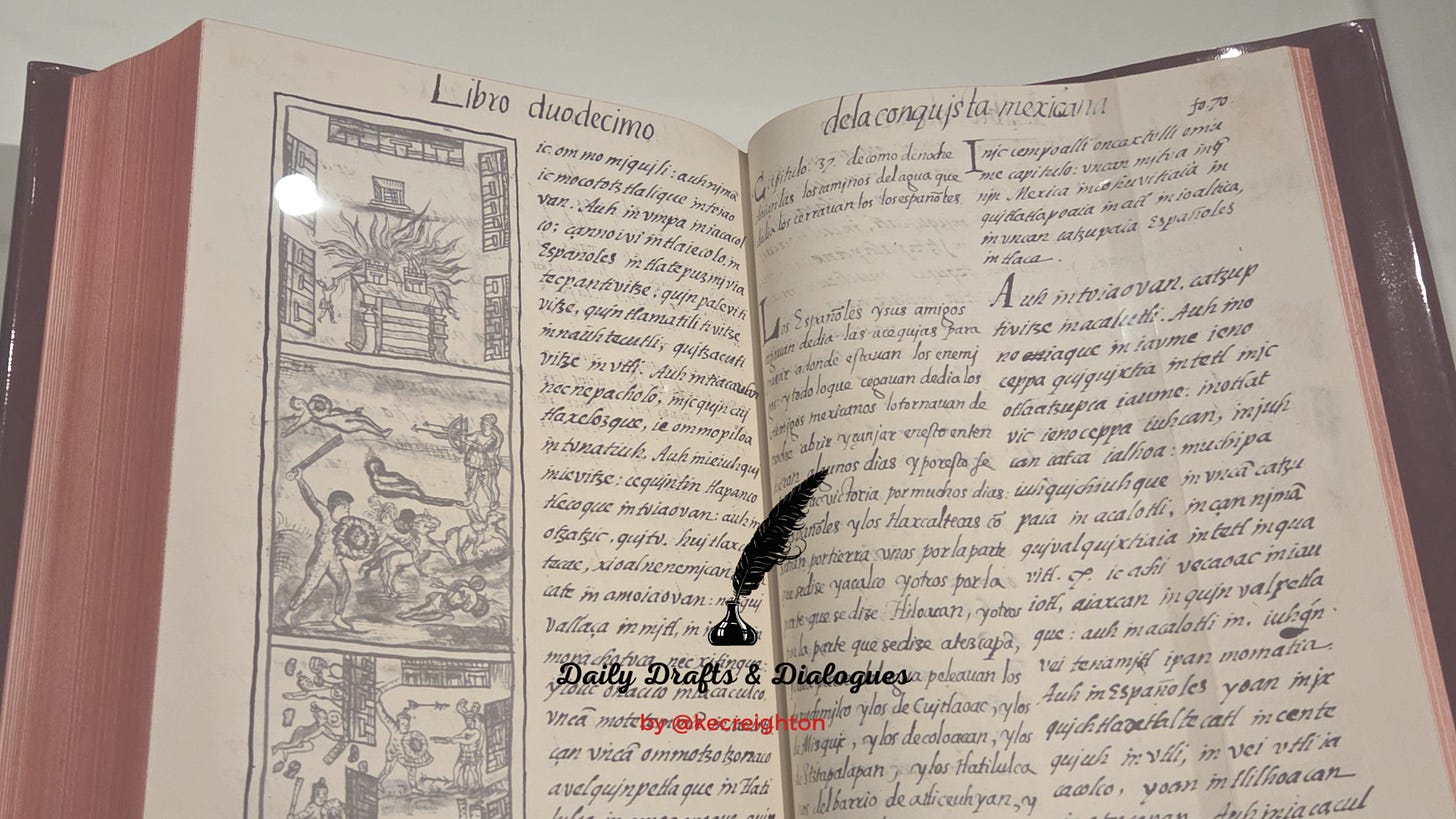 Libro duodecimo
ic ommo miquili: auh nima
ic mocototztlalique intoiao
van. Auh in vmpa miacacol
co: çannoivi in tlaiecolo, in
Españoles in tlatepuzmjvia
tecpantivitze, quin paleviti
vitze, quintlamatilitivitze
innauhtecutli, quitzacuti
vitze in vtli. Auh intiacaoan
necnepacholo, inic quincui
tlaxelozque, ie ommopiloa
in tonatiuh. Auh in iciuhqui
micvitze: cequintin tlapanco
tlecoque intoiaovan: auh in
otzatzic, quito. hui tlax
tecac, xioalnenemjcan
cate in amoiaovan:
vallaça in mjtl, in
monachotoca, nec xitinque
vncã
çan vncã ommotzotzonaco
avel quinpetlaque in tlati
dela conquista mexicana
fo. 70
Capitulo. 37. de como de noche
abrian las los caminos del agua que
de dia los cerrauan los españoles.
Los Españoles y sus amigos
cegauan de dia las acequias para
adonde estauan los enemj
gos: y todo lo que cegauan de dia los
enemigos mexicanos lo tornauan de
noche abrir y çanjar en esto enten
dieron algunos dias y por esto se
victoria por muchos dias:
españoles y los tlaxcaltecas cõ
por tierra vnos por la parte
que se dize yacalco y otros por la
parte que se dize Tliloacan, y otros
por la parte que se dize atezcapã,
poleauan los
de xuchimjlco y los de Cuitlaoac, y los
de Mizquic, y los de coloacan, y los
de Itztapalapan, y los tlatilulca
los del barrio de atliceuhyan, y
Injc cempoalli oncaxtolli omu
me capitulo: vncan mjtva inq
njn Mexica
quitlatlapoaia in atl in ioaltica,
in vncan catzupaia Españoles
in tlaca.
Auh intoiaovan, catzup
tivitze in acalutli. Auh in o
no oniaque in iaume ieno
ceppa quiquixtia in tetl injc
otlaatzupca iaume: in otlat
vic ieno ceppa iuhcan, injuh
can catca ialhoa: muchipa
iuh quichiuhque in vncã catzu
paia in acalotli, in can njmã
quivalquixtiaia in tetl in qua
vitl. &. ic achi vecaoac in iau
iotl, aiaxcan in quin valpetla
que: auh in acalotli in. iuhqn
vei tenamjtl ipan momatia.
Auh in Españoles yoan in jx
quich tlaxcaltecatl in cente
quiuh in vtli, in vei vtli ia
cacolco, yoan in tlilhoacan
Auh in iacacul
Daily Drafts & Dialogues
by @kecreighton